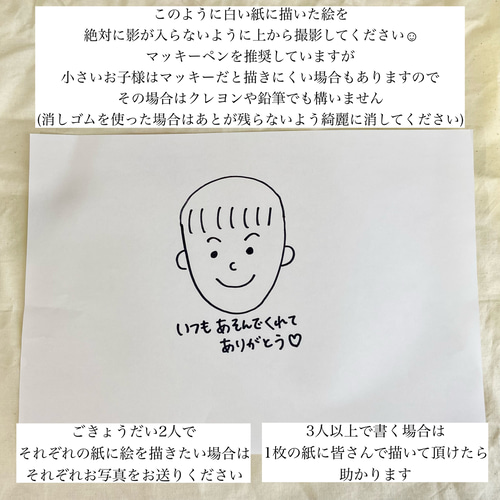 このように白い紙に描いた絵を
絶対に影が入らないように上から撮影してください☺
マッキーペンを推奨していますが
小さいお子様はマッキーだと描きにくい場合もありますので
その場合はクレヨンや鉛筆でも構いません
(消しゴムを使った場合はあとが残らないよう綺麗に消してください)
いつもあそんでくれて
ありがとう♡
ごきょうだい2人で
それぞれの紙に絵を描きたい場合は
それぞれお写真をお送りください
3人以上で書く場合は
1枚の紙に皆さんで描いて頂けたら
助かります